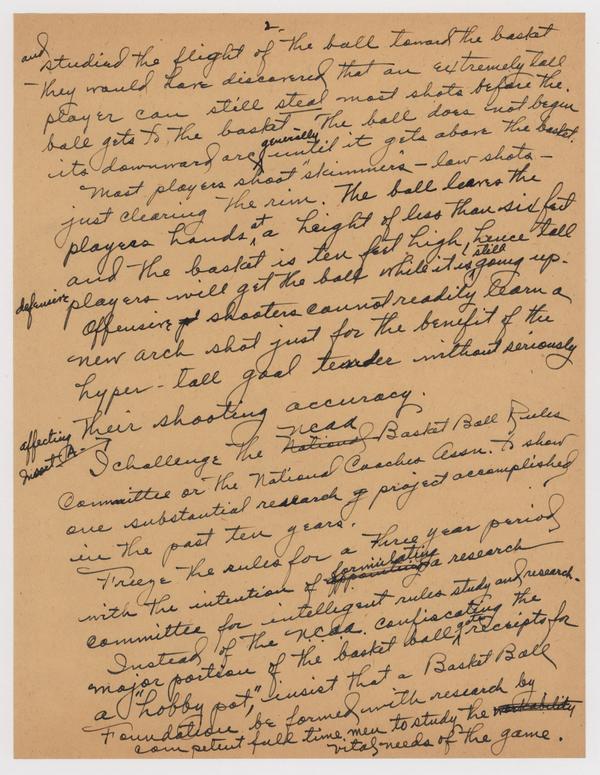 2-
and studied the flight of the ball toward the basket
- they would have discovered that an extremely tall
player can still steal most shots before the
ball gets to the basket. The ball does not begin
generally
its downward arc until it gets above the basket.
"Most players shoot "skimmers" - low shots -
just clearing the rim. The ball leaves the
players hands at a height of less than six feet
and the basket is ten feet high, hence tall
defensive players will get the ball while it is still going up.
Offensive shooters cannot readily learn a
new arch shot just for the benefit of the
hyper-tall goal tender without seriously
affecting their shooting accuracy.
Insert A- I challenge the NCAA National Basket Ball Rules
Committee or the National Coaches Assn. to show
one substantial research project accomplished
in the past ten years.
Freeze the rules for a three year period
with the intention of formulating appointing a research
committee for intellegent rules study and research.
Instead of the NCAA confiscating the
major portion of the basket ball gate receipts for
a "hobby pot", insist that a Basket Ball
Foundation be formed with research by
competent full time men to study the workability
vital needs of the game.